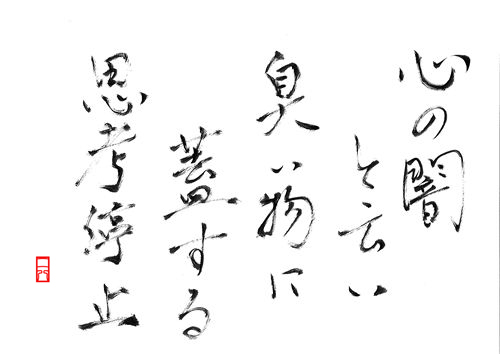 心の闇
と言い
臭い物に
蓋する
思考停止